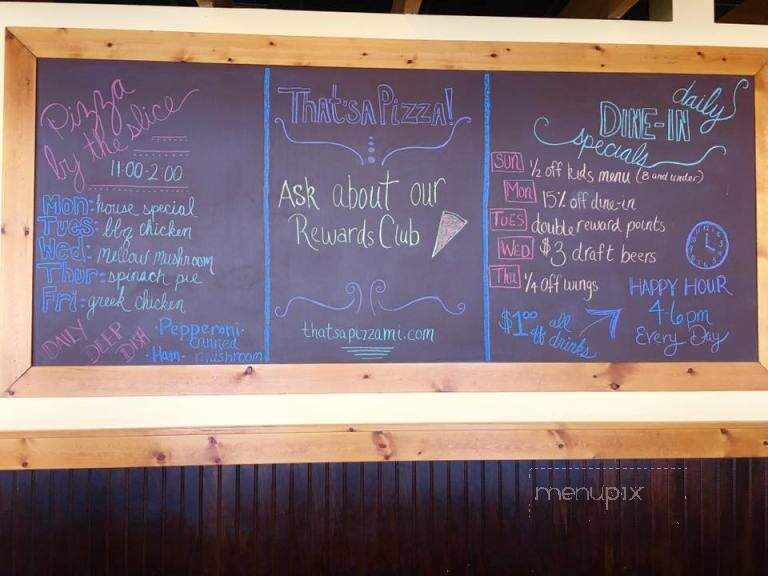 Pizza
by the slice
11:00-2:00
Mon: house special
Tues: bbq chicken
Wed: mellow mushroom
Thur: spinach pie
Fri: greek chicken
DAILY DEEP DISH
·Pepperoni·
canned
·Ham· mushroom
That'sa Pizza!
Ask about our
Rewards Club
thatsapizzami.com
daily
DINE-IN
specials
SUN ½ off kids menu (8 and under)
Mon 15% off dine-in
TUES double reward points
WED $3 draft beers
Thu ¼ off wings
HAPPY HOUR
4-6pm
Every Day
$1⁰⁰ off all drinks
menupix